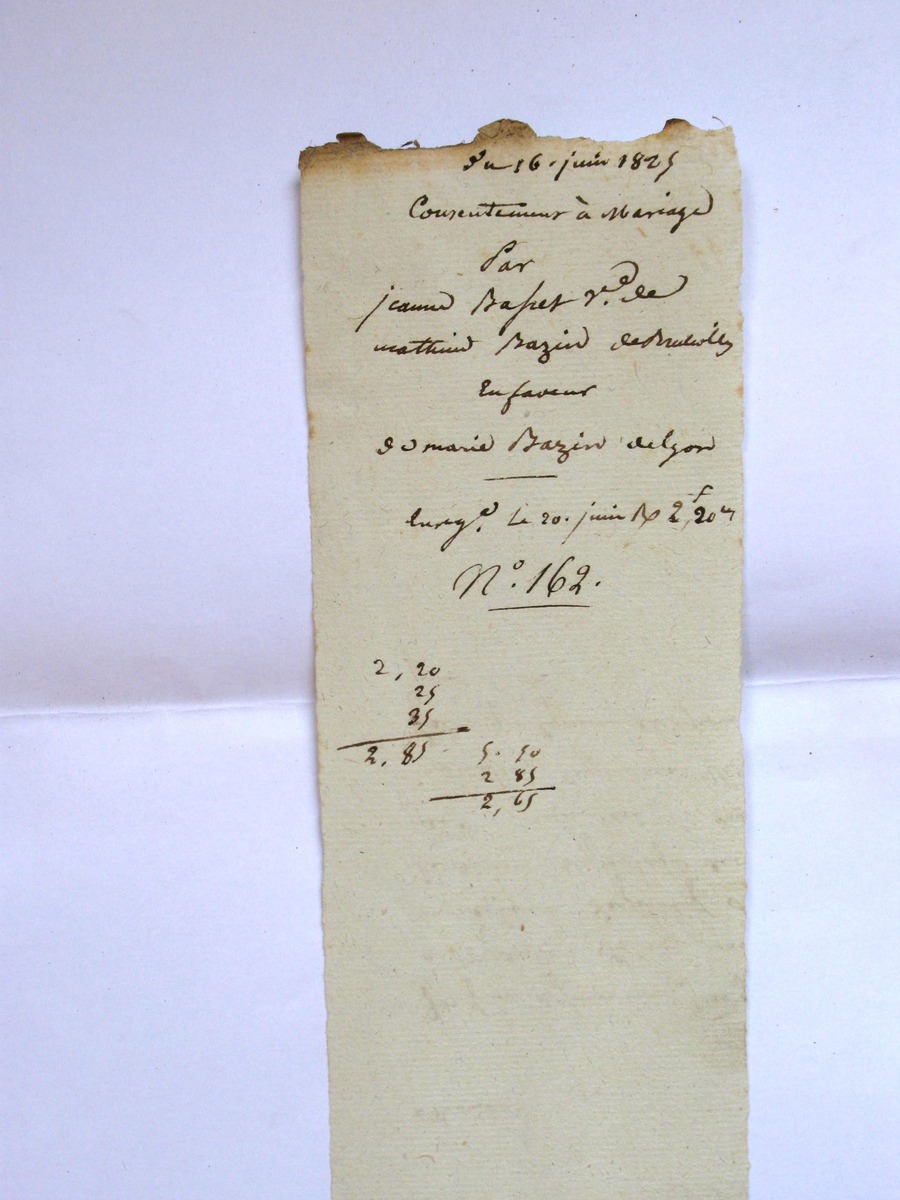 Du 16. juin 1825
Consentement à Mariage
Par
jeanne Basset v.e de
mathieu Bazin de
En faveur
de marie Bazin de lyon
Enreg.é le 20. juin R 2f,20c
N.o 162.
2, 20
25
35
2, 85
5. 50
2 85
2, 65